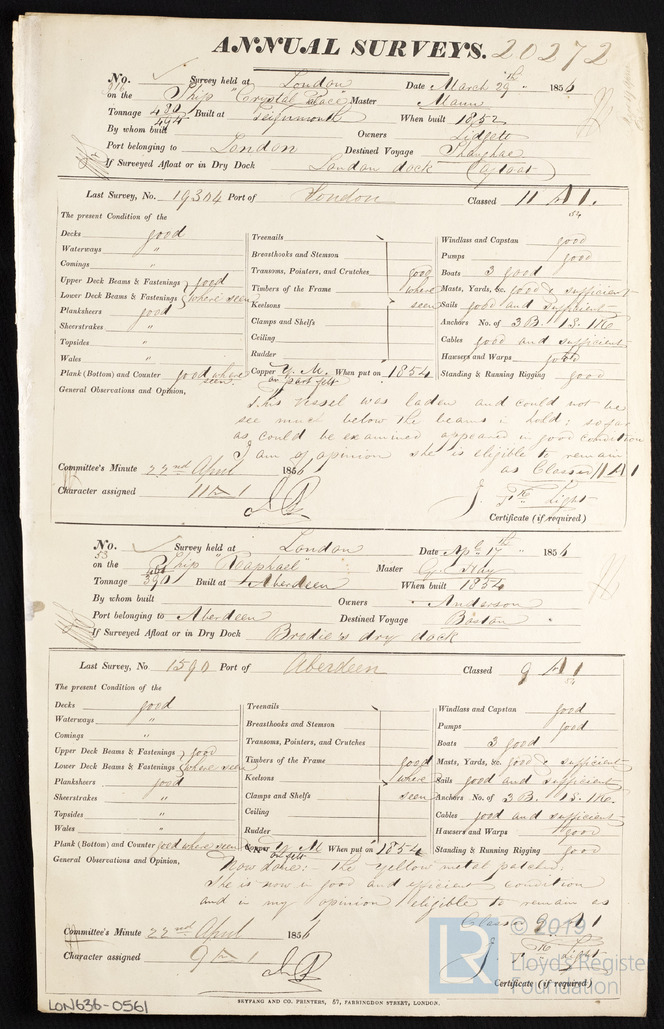 ANNUAL SURVEYS. 20272
No. Survey held at London Date March 29th 1856
on the Ship "Crystal Palace" Master Mann
Tonnage Built at Teignmouth When built 1852
494
By whom built Owners Lidgett
Port belonging to London Destined Voyage Shanghae
If Surveyed Afloat or in Dry Dock London dock (Afloat)
Last Survey, No. 19304 Port of London Classed 11 A 1.
54
The present Condition of the
Decks good
Waterways "
Comings "
Upper Deck Beams & Fastenings good
Lower Deck Beams & Fastenings where seen
Planksheers good
Sheerstrakes "
Topsides "
Wales "
Plank (Bottom) and Counter good where seen
Treenails
Breasthooks and Stemson
Transoms, Pointers, and Crutches good
Timbers of the Frame where
Keelsons seen
Clamps and Shelfs
Ceiling
Rudder
Copper Y. M. When put on 1854
on part felt
Windlass and Capstan good
Pumps good
Boats 3 good
Masts, Yards, &c. good & sufficient
Sails good and sufficient
Anchors No. of 3 B. 1 S. 1 Ke.
Cables good and sufficient
Hawsers and Warps good
Standing & Running Rigging good
General Observations and Opinion,
This vessel was laden and could not be
see much below the beams in hold: so far
as could be examined appeared in good condition
I am of opinion she is eligible to remain
as Classed 11 A 1
Committee's Minute 22nd April 1856
Character assigned 11 A 1
J. Light
Certificate (if required)
No. Survey held at London Date Apl. 17th 1856
53
on the Ship "Raphael" Master
Tonnage 390 Built at Aberdeen When built 1854
By whom built Owners Anderson
Port belonging to Aberdeen Destined Voyage Boston
If Surveyed Afloat or in Dry Dock Brodie's dry dock
Last Survey, No. 1590 Port of Aberdeen Classed 9 A 1
54
The present Condition of the
Decks good
Waterways "
Comings "
Upper Deck Beams & Fastenings good
Lower Deck Beams & Fastenings where seen
Planksheers good
Sheerstrakes "
Topsides "
Wales "
Plank (Bottom) and Counter good where seen
Treenails
Breasthooks and Stemson
Transoms, Pointers, and Crutches
Timbers of the Frame good
Keelsons where
Clamps and Shelfs seen
Ceiling
Rudder
Copper Y. M When put on 1854
on felt
Windlass and Capstan good
Pumps good
Boats 3 good
Masts, Yards, &c. good & sufficient
Sails good and sufficient
Anchors No. of 3 B. 1 S. 1 Ke.
Cables good and sufficient
Hawsers and Warps good
Standing & Running Rigging good
General Observations and Opinion,
Now done:- the yellow metal patched.
She is now in good and efficient condition
and in my opinion eligible to remain as
Classed 9 A 1
Committee's Minute 22nd April 1856
Character assigned 9 A 1
J. Light
Certificate (if required)
© 2019
LR Lloyd's Register
Foundation
LON636-0561
SEYFANG AND CO. PRINTERS, 57, FARRINGDON STREET, LONDON.